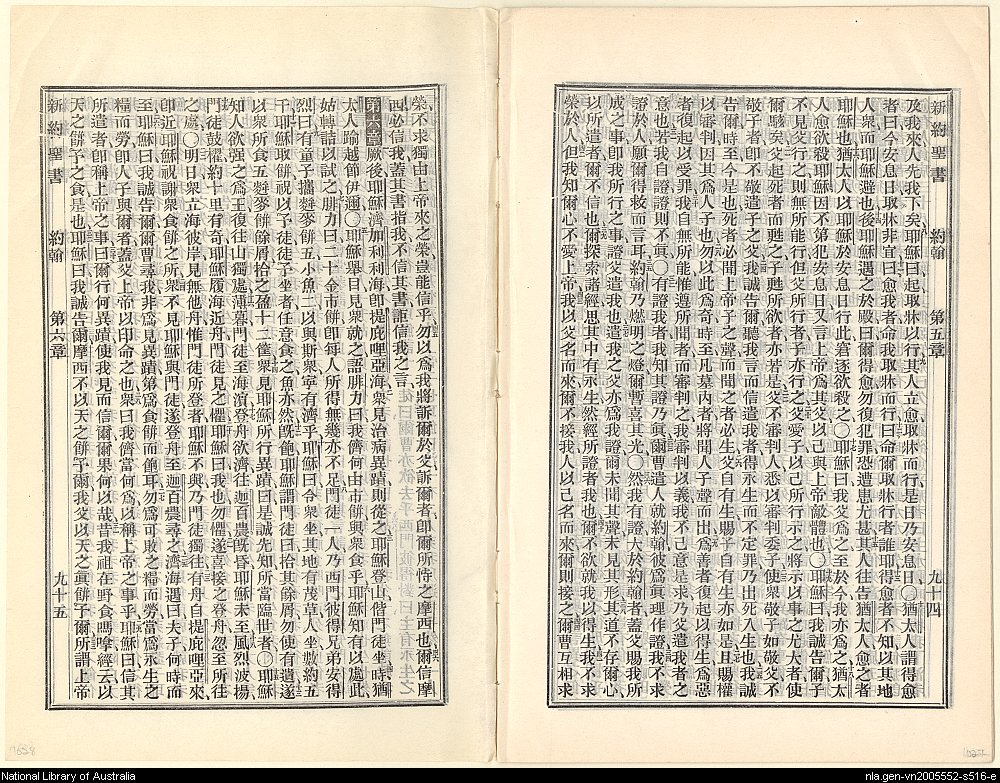 新約聖書 約翰 第五章 九十四
及我來人先我下矣耶穌曰起取牀以行其人立愈取牀而行是日乃安息日〇猶太人謂得愈
者曰今安息日取牀非宜曰愈我者命我取牀而行曰命爾取牀行者誰耶得愈者不知以其地
人衆而耶穌避也後耶穌遇之於殿曰爾得愈勿復犯罪恐遭患尤甚其人往告猶太人愈之者
耶穌也猶太人以耶穌於安息日行此窘逐欲殺之〇耶穌曰我父爲之至於今我亦爲之猶太
人愈欲殺耶穌因不第犯安息日又言上帝爲其父以己與上帝敵體也〇耶穌曰我誠告爾子
不見父行之則無所能行但父所行者子亦行之父愛子以己所行示之將示以事之尤大者使
爾駭矣父起死者而甦之子甦所欲者亦若是父不審判人悉以審判委子使衆敬子如敬父不
敬子者卽不敬遣子之父我誠告爾聽我言而信遣我者得永生而不定罪乃出死入生也我誠
告爾時至今是也死者必聞上帝子之聲而聞之者必生父自有生賜子自有生亦如是且賜權
以審判因其爲人子也勿以此爲奇時至凡墓內者將聞人子聲而出爲善者復起以得生爲惡
者復起以受罪我自無所能惟遵所聞者而審判之我審判以義我不己意是求乃父遣我者之
意也若我自證證則不眞〇有證我者我知其證乃眞爾曹遣人就約翰彼爲眞理作證我不求
證於人願爾得救而言耳約翰乃燃明之燈爾暫喜其光〇然我有證大於約翰者蓋父賜我所
成之事卽我所行之事證父遣我也遣我之父亦爲我證爾未聞其聲未見其形其道不存爾心
以所遣者爾不信也爾探索諸經思其中有永生然經所證者我也爾不欲就我以得生我不求
榮於人但我知爾心不愛上帝我以父名而來爾不接我人以己名而來爾則接之爾曹互相求
榮不求獨由上帝來之榮豈能信乎勿以爲我將訴爾於父訴爾者卽爾所恃之摩西也爾信摩
西必信我蓋其書指我不信其書詎信我之言
第六章 厥後耶穌濟加利利海卽提庇哩亞海衆見治病異蹟則從之耶穌登山偕門徒坐時猶
太人踰越節伊邇〇耶穌舉目見衆就之語腓力曰我儕何由市餅與衆食乎耶穌知有以處此
姑轉詰以試之腓力曰二十金市餅卽每人所得無幾亦不足門徒一人乃西門彼得兄弟安得
烈曰有童子攜麰麥餅五小魚二以與斯衆寧有濟乎耶穌曰令衆坐其地有茂草人坐數約五
千耶穌取餅祝以予徒徒予坐者任意食之魚亦然旣飽耶穌謂門徒曰拾其餘屑勿使有遺遂
以衆所食五麰麥餅餘屑拾之盈十二筐衆見耶穌所行異蹟曰是誠先知所當臨世者〇耶穌
知人欲强之爲王復往山獨處薄暮門徒至海濱登舟欲濟往迦百農旣昏耶穌未至風烈波揚
門徒鼓櫂約十里有奇耶穌履海近舟門徒見而懼耶穌曰我也勿懼遂喜接之登舟忽至所往
之處〇明日衆立海彼岸見無他舟惟門徒所登者耶穌不與乃門徒獨往有舟自提庇哩亞來
卽近耶穌祝謝衆食餅之所衆不見耶穌與門徒遂登舟至迦百農尋之濟海遇曰夫子何時而
至耶穌曰我誠告爾爾曹尋我非爲見異蹟第爲食餅而飽耳勿爲可敗之糧而勞當爲永生之
糧而勞卽人子與爾者蓋父上帝以印命之也衆曰我儕當何爲以稱上帝之事乎耶穌曰信其
所遣者卽稱上帝之事曰爾行何異蹟使我見而信爾爾果何以哉昔我祖在野食嗎嗱經云以
天之餅予之食是也耶穌曰我誠告爾摩西不以天之餅予爾我父以天之眞餅予爾所謂上帝
新約聖書 約翰 第六章 九十五
National Library of Australia
nla.gen-vn2005552-s516-e